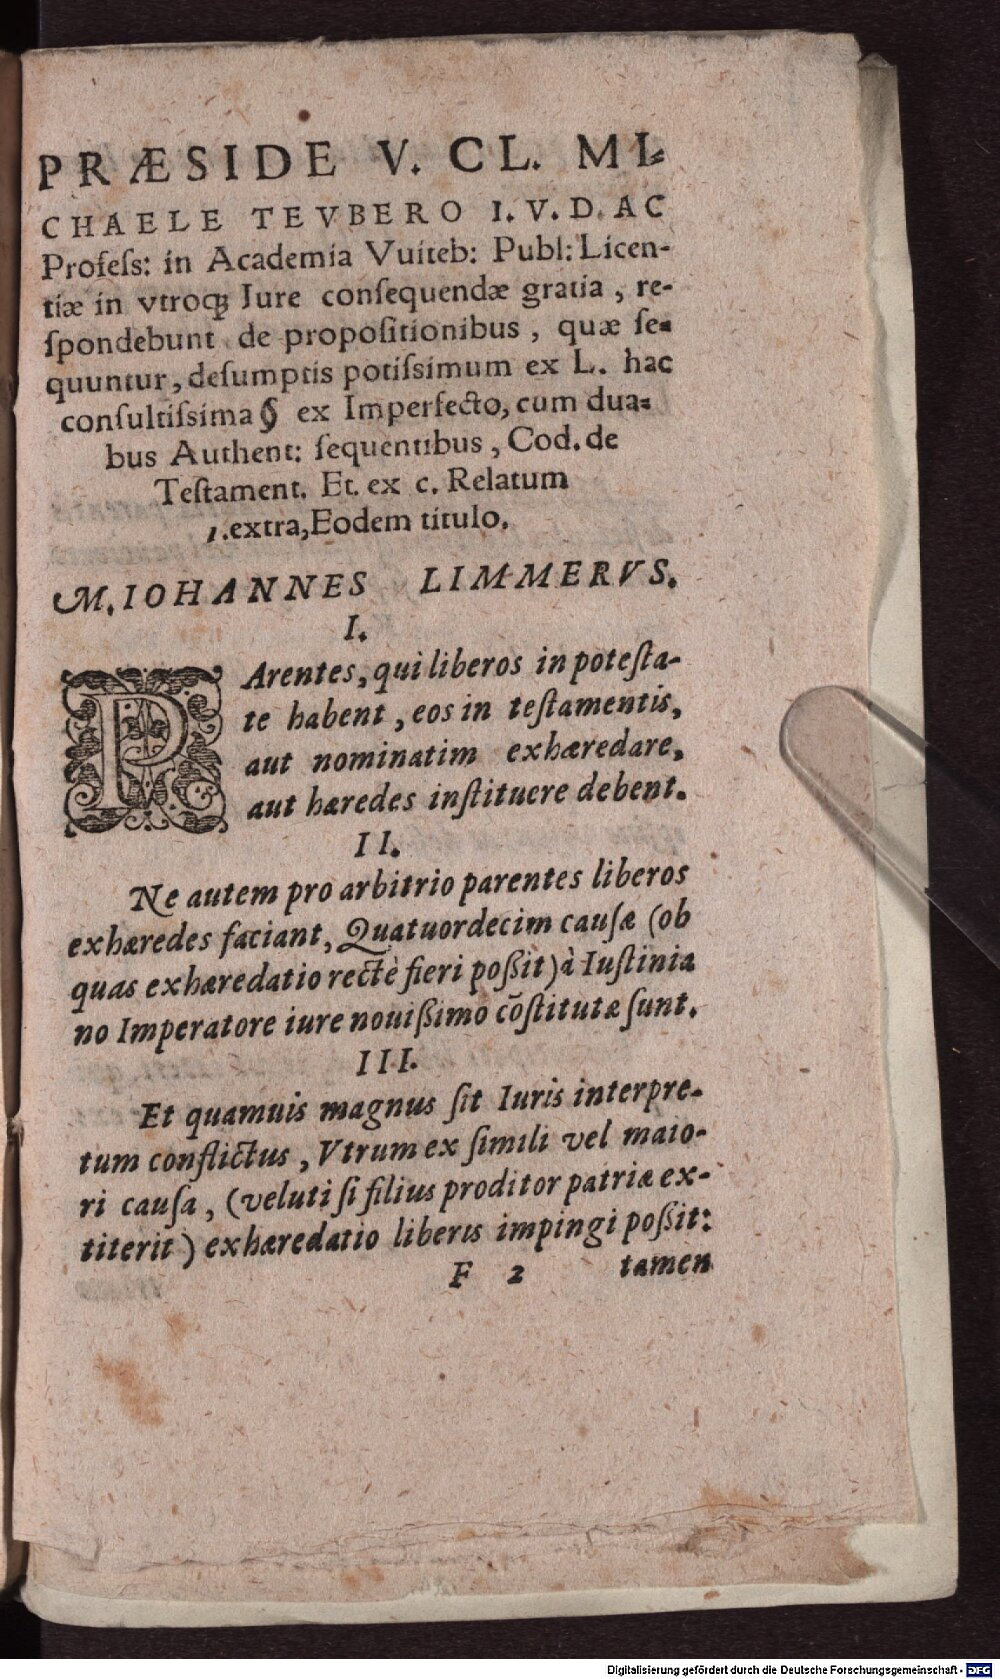 PRÆSIDE V. CL. MI-
CHAELE TEVBERO I. V. D. AC
Profeſs: in Academia Vuiteb: Publ: Licen-
tiæ in vtroq; Jure conſequendæ gratia, re-
ſpondebunt de propoſitionibus, quæ ſe-
quuntur, deſumptis potiſsimum ex L. hac
conſultiſsima § ex Imperfecto, cum dua-
bus Authent: ſequentibus, Cod. de
Teſtament. Et. ex c. Relatum
1. extra, Eodem titulo.
M. IOHANNES LIMMERVS.
I.
PArentes, qui liberos in poteſta-
te habent, eos in teſtamentis,
aut nominatim exhæredare,
aut hæredes inſtituere debent.
II.
Ne autem pro arbitrio parentes liberos
exhæredes faciant, Quatuordecim cauſæ (ob
quas exhæredatio rectè fieri poßit) à Iuſtinia
no Imperatore iure nouißimo cõſtitutæ ſunt.
III.
Et quamuis magnus ſit Iuris interpre-
tum conflictus, Vtrum ex ſimili vel maio-
ri cauſa, (veluti ſi filius proditor patriæ ex-
titerit) exhæredatio liberis impingi poßit:
F 2 tamen
Digitalisierung gefördert durch die Deutsche Forschungsgemeinschaft - DFG